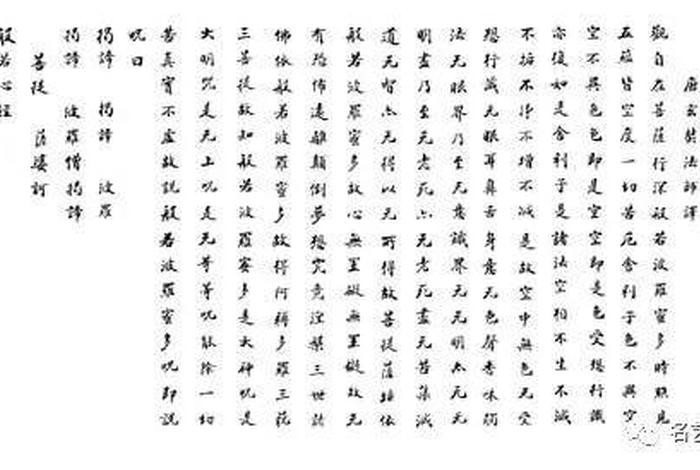 唐三藏法師譯
觀自在菩薩行深般若波羅蜜多時照見
五蘊皆空度一切苦厄舍利子色不異空
空不異色色即是空空即是色受想行識
亦復如是舍利子是諸法空相不生不滅
不垢不淨不增不減是故空中無色无受
想行識无眼耳鼻舌身意无色聲香味觸
法无眼界乃至无意識界无无明亦无无
明盡乃至无老死亦无老死盡无苦集滅
道无智亦无得以无所得故菩提薩埵依
般若波羅蜜多故心無罣礙無罣礙故无
有恐怖遠離顛倒夢想究竟涅槃三世諸
佛依般若波羅蜜多故得阿耨多羅三藐
三菩提故知般若波羅蜜多是大神咒是
大明咒是无上咒是无等等咒能除一切
苦真實不虛故說般若波羅蜜多咒即說
咒曰
揭諦 揭諦 波羅
揭諦 波羅僧揭諦
菩提 薩婆訶
般若心經
名